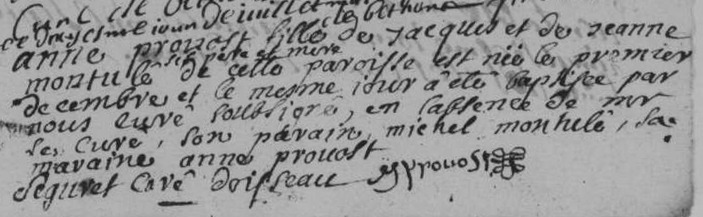 anne provost fille de Jacques et de Jeanne
ses père et mère
montulé de cette paroisse est née le premier
decembre et le mesme iour a êté baptisee par
nous curé soubsigné, en l'absence de mr
le curé, son parain, michel montulé, sa
maraine anne provost
Seguret Curé doisseau GProvost